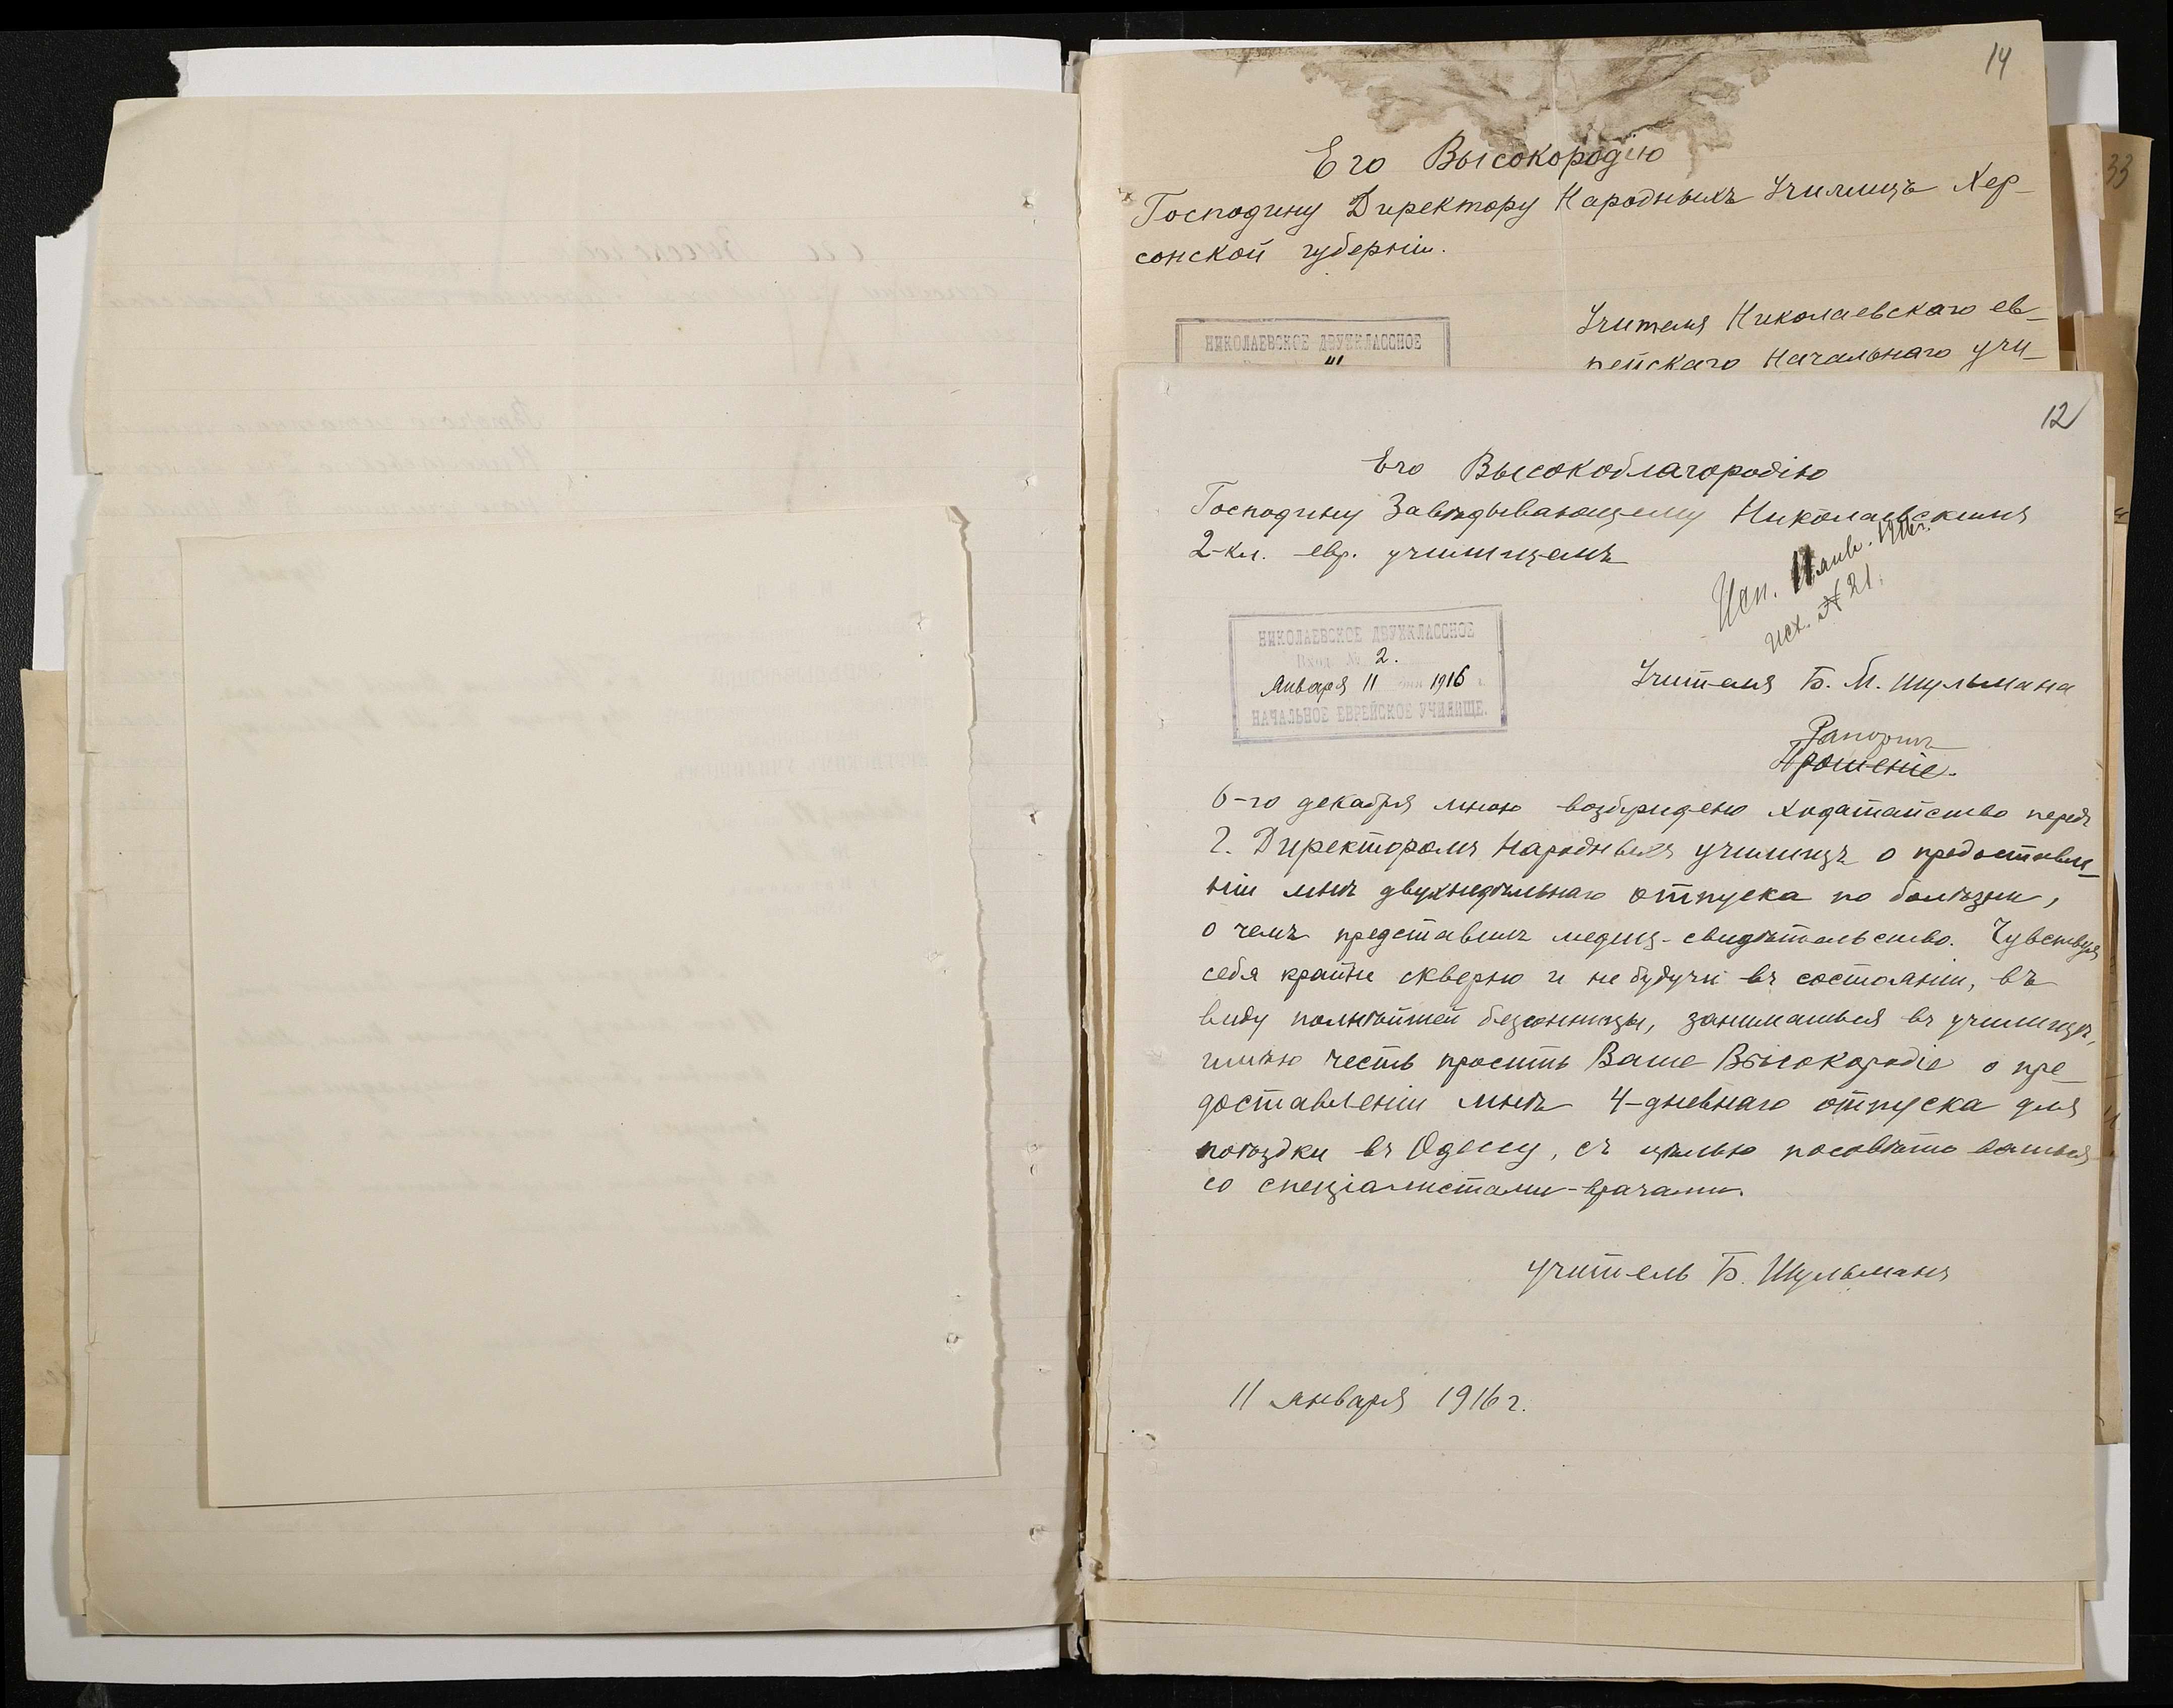 14
Его Высокородію
Господину Директору Народныхъ Училищъ Хер-
сонской губерніи.
Учителя Николаевскаго ев-
рейскаго начальнаго учи-
НИКОЛАЕВСКОЕ ДВУХКЛАССНОЕ
33
12
Его Высокоблагородію
Господину Завѣдывающему Николаевскимъ
2-кл. евр. училищемъ
Исп. 11 янв. 1916 г.
исх. № 21.
НИКОЛАЕВСКОЕ ДВУХКЛАССНОЕ
Вход. № 2.
Января 11 дня 1916 г.
НАЧАЛЬНОЕ ЕВРЕЙСКОЕ УЧИЛИЩЕ.
Учителя Б. М. Шульмана
Рапортъ
Прошеніе.
6-го декабря мною возбуждено ходатайство передъ
г. Директоромъ Народныхъ училищъ о предоставле-
ніи мнѣ двухнедѣльнаго отпуска по болѣзни,
о чемъ представилъ медиц-свидѣтельство. Чувствуя
себя крайне скверно и не будучи въ состояніи, въ
виду полнѣйшей безсонницы, заниматься въ училищѣ,
имѣю честь просить Ваше Высокородіе о пре-
доставленіи мнѣ 4-дневнаго отпуска для
поѣздки въ Одессу, съ цѣлью посовѣтоваться
со спеціалистами-врачами.
Учитель Б. Шульманъ
11 января 1916 г.